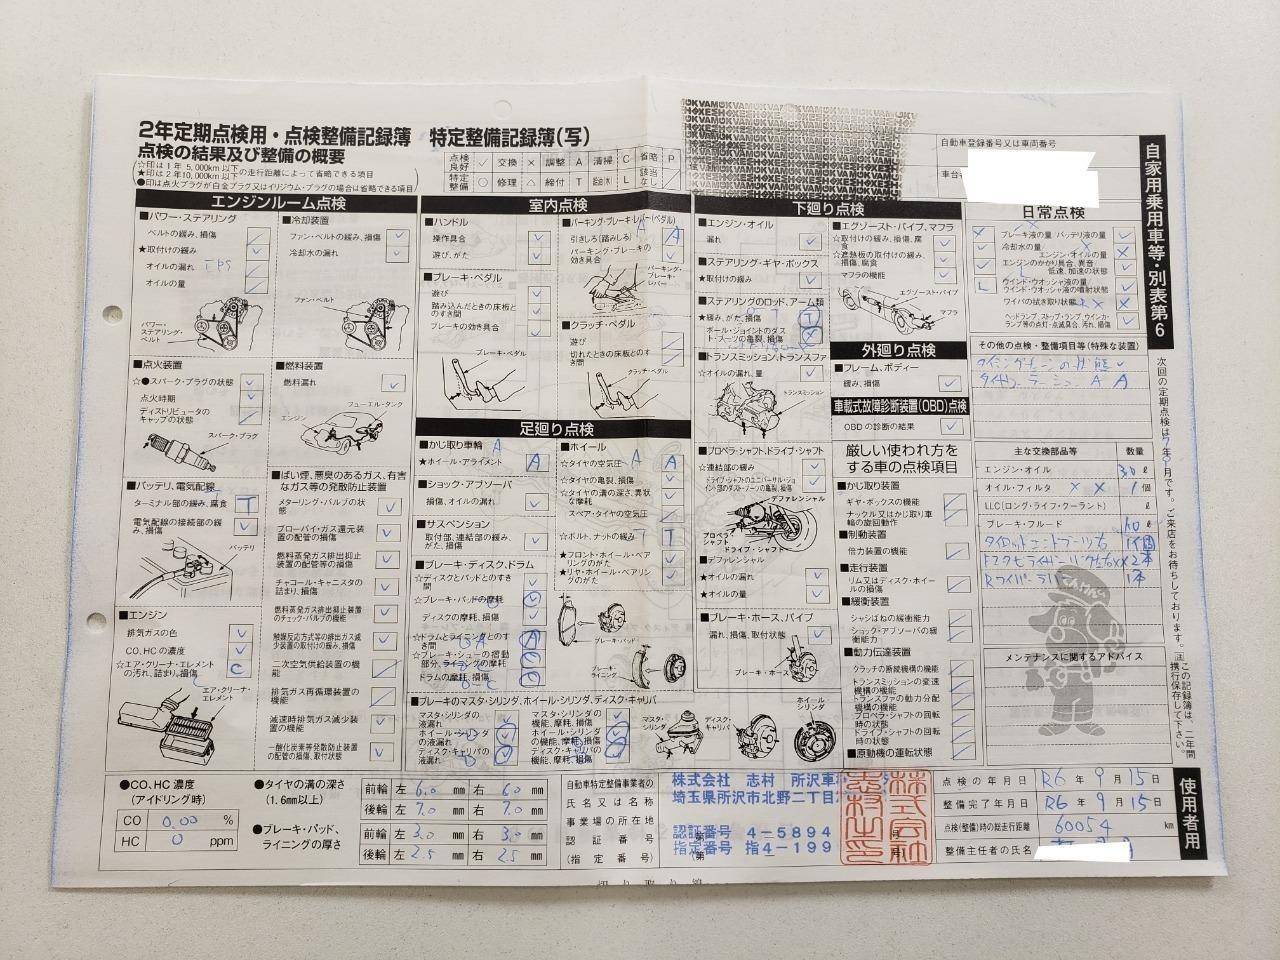 2年定期点検用・点検整備記録簿 特定整備記録簿(写)
点検の結果及び整備の概要
☆印は1年 5,000km以下
★印は2年10,000km以下の走行距離によって省略できる項目
●印は点火プラグが白金プラグ又はイリジウム・プラグの場合は省略できる項目
点検良好 ✓ 交換 × 調整 A 清掃 C 省略 P
特定整備 ○ 修理 △ 締付 T 給油(水) L 該当なし /
自動車登録番号又は車両番号
車台
自家用乗用車等・別表第6
エンジンルーム点検
■パワー・ステアリング
ベルトの緩み、損傷
★取付けの緩み
オイルの漏れ
オイルの量
EPS
パワー・ステアリング・ベルト
■冷却装置
ファン・ベルトの緩み、損傷 ✓
冷却水の漏れ ✓
ファン・ベルト
■点火装置
☆●スパーク・プラグの状態 ✓
点火時期 ✓
ディストリビュータのキャップの状態
スパーク・プラグ
■燃料装置
燃料漏れ ✓
フューエル・タンク
エンジン
■バッテリ、電気配線
ターミナル部の緩み、腐食 T
電気配線の接続部の緩み、損傷 ✓
バッテリ
■エンジン
排気ガスの色 ✓
CO、HCの濃度 ✓
☆エア・クリーナ・エレメントの汚れ、詰まり、損傷 C
エア・クリーナ・エレメント
■ばい煙、悪臭のあるガス、有害なガス等の発散防止装置
メターリング・バルブの状態 ✓
ブローバイ・ガス還元装置の配管の損傷 ✓
燃料蒸発ガス排出抑止装置の配管等の損傷 ✓
チャコール・キャニスタの詰まり、損傷 ✓
燃料蒸発ガス排出抑止装置のチェック・バルブの機能 ✓
触媒反応方式等の排出ガス減少装置の取付けの緩み、損傷 ✓
二次空気供給装置の機能
排気ガス再循環装置の機能
減速時排気ガス減少装置の機能 ✓
一酸化炭素等発散防止装置の配管の損傷、取付状態 ✓
室内点検
■ハンドル
操作具合 ✓
遊び、がた ✓
■ブレーキ・ペダル
遊び ✓
踏み込んだときの床板とのすき間 ✓
ブレーキの効き具合 ✓
ブレーキ・ペダル
■パーキング・ブレーキ・レバー(ペダル)
引きしろ(踏みしろ) A
パーキング・ブレーキの効き具合 ✓
パーキング・ブレーキ・レバー
■クラッチ・ペダル
遊び
切れたときの床板とのすき間
クラッチ・ペダル
足廻り点検
■かじ取り車輪
★ホイール・アライメント A
■ショック・アブソーバ
損傷、オイルの漏れ ✓
■サスペンション
取付部、連結部の緩み、がた、損傷 ✓
■ブレーキ・ディスク、ドラム
☆ディスクとパッドとのすき間
☆ブレーキ・パッドの摩耗
ディスクの摩耗、損傷
☆ドラムとライニングとのすき間 A
☆ブレーキ・シューの摺動部分、ライニングの摩耗
ドラムの摩耗、損傷
■ホイール
☆タイヤの空気圧 A
☆タイヤの亀裂、損傷 ✓
☆タイヤの溝の深さ、異状な摩耗 ✓
スペア・タイヤの空気圧
☆ボルト、ナットの緩み T
★フロント・ホイール・ベアリングのがた ✓
★リヤ・ホイール・ベアリングのがた ✓
ブレーキ・パッド
ブレーキ・ライニング
■ブレーキのマスタ・シリンダ、ホイール・シリンダ、ディスク・キャリパ
マスタ・シリンダの液漏れ
ホイール・シリンダの液漏れ
ディスク・キャリパの液漏れ
マスタ・シリンダの機能、摩耗、損傷
ホイール・シリンダの機能、摩耗、損傷
ディスク・キャリパの機能、摩耗、損傷
マスタ・シリンダ
ディスク・キャリパ
ホイール・シリンダ
下廻り点検
■エンジン・オイル
漏れ ✓
■ステアリング・ギヤ・ボックス
★取付けの緩み ✓
■ステアリングのロッド、アーム類
★緩み、がた、損傷 T
ボール・ジョイントのダスト・ブーツの亀裂、損傷
■トランスミッション、トランスファ
☆オイルの漏れ、量 ✓
トランスミッション
■プロペラ・シャフト、ドライブ・シャフト
☆連結部の緩み ✓
ドライブ・シャフトのユニバーサル・ジョイント部のダスト・ブーツの亀裂、損傷 ✓
デファレンシャル
プロペラ・シャフト
ドライブ・シャフト
■デファレンシャル
★オイルの漏れ ✓
★オイルの量 ✓
■ブレーキ・ホース、パイプ
漏れ、損傷、取付状態 ✓
ブレーキ・ホース
■エグゾースト・パイプ、マフラ
☆取付けの緩み、損傷、腐食 ✓
☆遮熱板の取付けの緩み、損傷、腐食 ✓
マフラの機能 ✓
エグゾースト・パイプ
マフラ
外廻り点検
■フレーム、ボディー
緩み、損傷 ✓
車載式故障診断装置(OBD)点検
OBDの診断の結果 ✓
厳しい使われ方をする車の点検項目
■かじ取り装置
ギヤ・ボックスの機能
ナックル又はかじ取り車輪の旋回動作
■制動装置
倍力装置の機能
■走行装置
リム又はディスク・ホイールの損傷
■緩衝装置
シャシばねの緩衝能力
ショック・アブソーバの緩衝能力
■動力伝達装置
クラッチの断続機構の機能
トランスミッションの変速機構の機能
トランスファの動力分配機構の機能
プロペラ・シャフトの回転時の状態
ドライブ・シャフトの回転時の状態
■原動機の運転状態
日常点検
ブレーキ液の量
バッテリ液の量 ✓
冷却水の量 ✓
エンジン・オイルの量 ×
エンジンのかかり具合、異音
低速、加速の状態 ✓
ウインド・ウオッシャ液の量 L
ウインド・ウオッシャ液の噴射状態
ワイパの拭き取り状態 ×
ヘッドランプ、ストップ・ランプ、ウインカ・ランプ等の点灯・点滅具合、汚れ、損傷 ✓
その他の点検・整備項目等(特殊な装置)
タイミングチェーンの状態 ✓
タイヤローテーション A A
主な交換部品等 数量
エンジン・オイル 3.0 ℓ
オイル・フィルタ × × 1 個
LLC(ロング・ライフ・クーラント) ℓ
ブレーキ・フルード ℓ
メンテナンスに関するアドバイス
てんけんくん
次回の定期点検は 7年 月です。ご来店をお待ちしております。
注 この記録簿は、二年間携行保存して下さい。
●CO、HC濃度
(アイドリング時)
CO 0.00 %
HC 0 ppm
●タイヤの溝の深さ
(1.6mm以上)
前輪 左 6.0 mm 右 6.0 mm
後輪 左 7.0 mm 右 7.0 mm
●ブレーキ・パッド、ライニングの厚さ
前輪 左 3.0 mm 右 3.0 mm
後輪 左 2.5 mm 右 2.5 mm
自動車特定整備事業者の
氏名又は名称
事業場の所在地
認証番号
(指定番号)
株式会社 志村 所沢車
埼玉県所沢市北野二丁目
認証番号 4-5894
指定番号 指4-199
点検の年月日 R6年9月15日
整備完了年月日 R6年9月15日
点検(整備)時の総走行距離 60054 km
整備主任者の氏名
使用者用
切り取り線